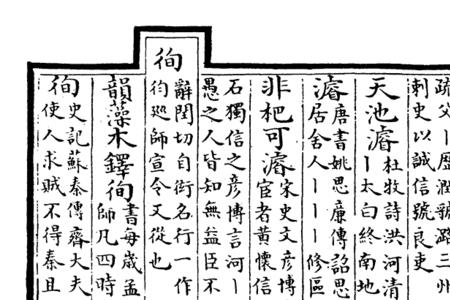 疏父ー歷潤虢潞三州
刺史以誠信號良吏
天池濬
杜牧詩洪河清
ー太白終南地
濬
唐書姚思廉傳詔思
居舍人ーーーー修區
非杷可濬
宋史文彥博
宦者黃懷信
石獨信之彥博言河ー
愚之人皆知無益臣不
徇
辭閏切自衒名行一作
巡師宣令又從也
韻藻木鐸徇
書每歲孟
師凡四時
徇
史記蘇秦傳齊大夫
使人求賊不得秦且